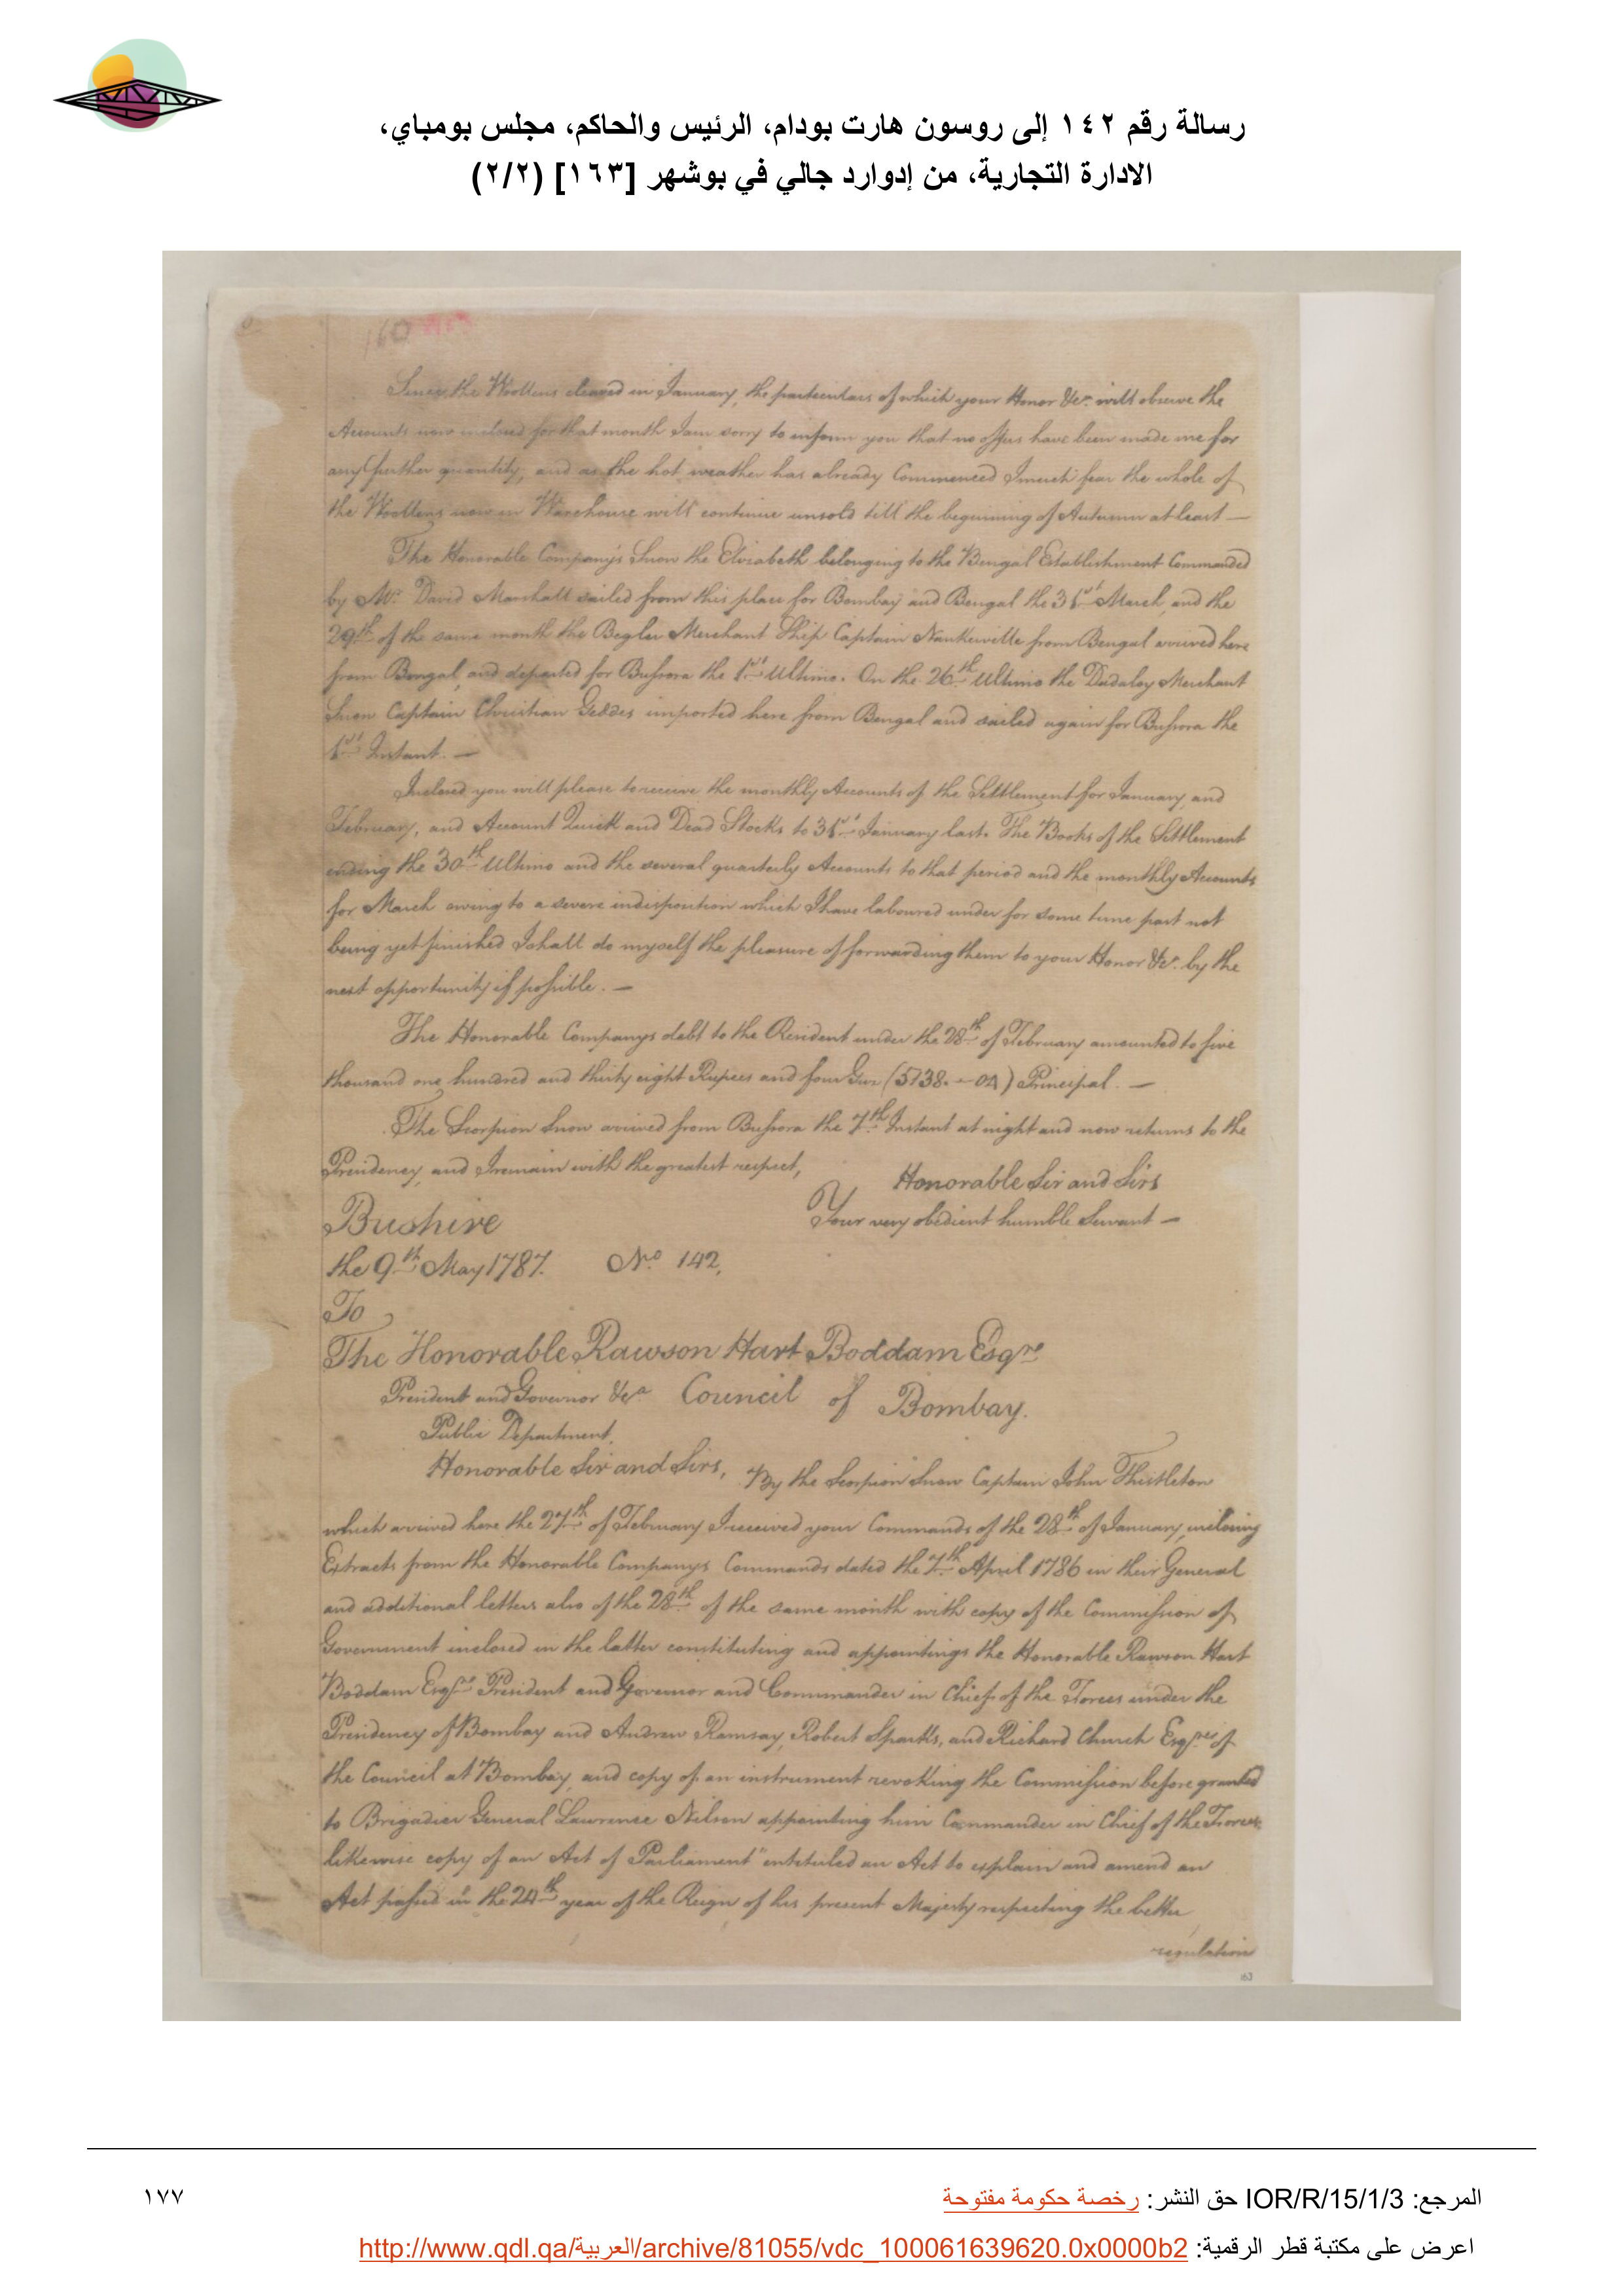 رسالة رقم ١٤٢ إلى روسون هارت بودام، الرئيس والحاكم، مجلس بومباي،
الادارة التجارية، من إدوارد جالي في بوشهر [١٦٣] (٢/٢)
160
Since the Woollens cleared in January, the particulars of which your Honor &ca. will observe the
Accounts now inclosed for that month I am sorry to inform you that no offers have been made me for
any further quantity, and as the hot weather has already Commenced I much fear the whole of
the Woollens now in Warehouse will continue unsold till the beginning of Autumn at least —
The Honorable Company's Snow the Elizabeth belonging to the Bengal Establishment Commanded
by Mr. David Marshall sailed from this place for Bombay and Bengal the 31st March, and the
29th of the same month the Begler Merchant Ship Captain Nankeiville from Bengal arrived here
from Bengal, and departed for Bussora the 1st Ultimo. On the 26th Ultimo the Dadaloy Merchant
Snow Captain Christian Geddes imported here from Bengal and sailed again for Bussora the
1st Instant. —
Inclosed you will please to receive the monthly Accounts of the Settlement for January and
February, and Account Quick and Dead Stocks to 31st January last. The Books of the Settlement
ending the 30th Ultimo and the several quarterly Accounts to that period and the monthly Accounts
for March owing to a severe indisposition which I have laboured under for some time past not
being yet finished I shall do myself the pleasure of forwarding them to your Honor &ca. by the
next opportunity if possible. —
The Honorable Companys debt to the Resident under the 28th of February amounted to five
thousand one hundred and thirty eight Rupees and four (5138. - 04) Principal. —
The Scorpion Snow arrived from Bussora the 7th Instant at night and now returns to the
Presidency, and I remain with the greatest respect,
Honorable Sir and Sirs
Your very obedient humble Servant —
Bushire
the 9th May 1787. No. 142,
To
The Honorable Rawson Hart Boddam Esqre
President and Governor &ca Council of Bombay.
Public Department.
Honorable Sir and Sirs, By the Scorpion Snow Captain John Thistleton
which arrived here the 27th of February I received your Commands of the 28th of January, inclosing
Extracts from the Honorable Companys Commands dated the 7th April 1786 in their General
and additional letters also of the 28th of the same month with copy of the Commission of
Government inclosed in the latter constituting and appointings the Honorable Rawson Hart
Boddam Esqre President and Governor and Commander in Chief of the Forces under the
Presidency of Bombay and Andrew Ramsay, Robert Sparks, and Richard Church Esqres of
the Council at Bombay, and copy of an instrument revoking the Commission before granted
to Brigadier General Lawrence Nilson appointing him Commander in Chief of the Forces,
likewise copy of an Act of Parliament "entituled an Act to explain and amend an
Act passed in the 24th year of the Reign of his present Majesty respecting the better
regulation
163
المرجع: IOR/R/15/1/3 حق النشر: رخصة حكومة مفتوحة
١٧٧
اعرض على مكتبة قطر الرقمية: http://www.qdl.qa/العربية/archive/81055/vdc_100061639620.0x0000b2